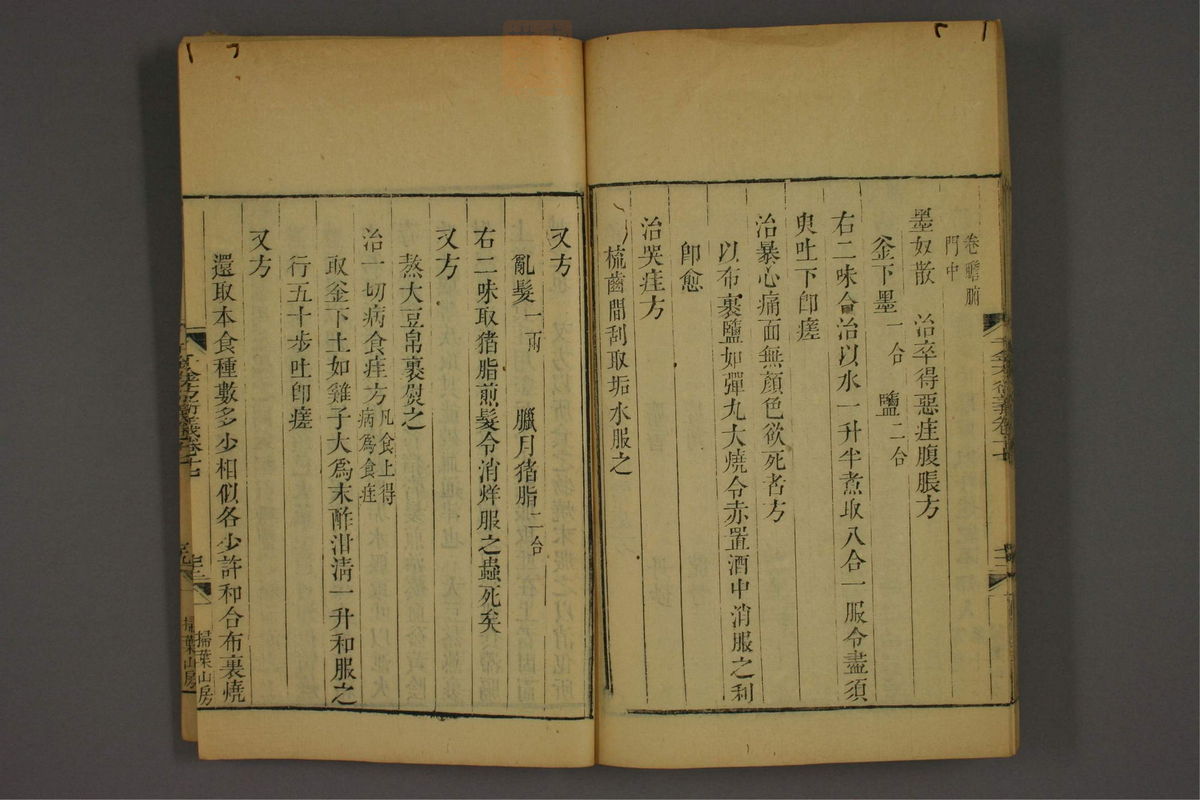 卷膽腑
門中
墨奴散　治卒得惡疰腹脹方
釜下墨一合　鹽二合
右二味合治以水一升半煮取八合一服令盡須
臾吐下即瘥
治暴心痛面無顏色欲死者方
以布裹鹽如彈丸大燒令赤置酒中消服之利
即愈
治哭疰方
梳齒間刮取垢水服之
又方
亂髮一兩　臘月猪脂二合
右二味取猪脂煎髮令消烊服之蟲死矣
又方
熬大豆帛裹熨之
治一切病食疰方凡食上得病爲食疰
取釜下土如雞子大爲末酢泔清一升和服之
行五十步吐即瘥
又方
還取本食種數多少相似各少許和合布裹燒
掃葉山房